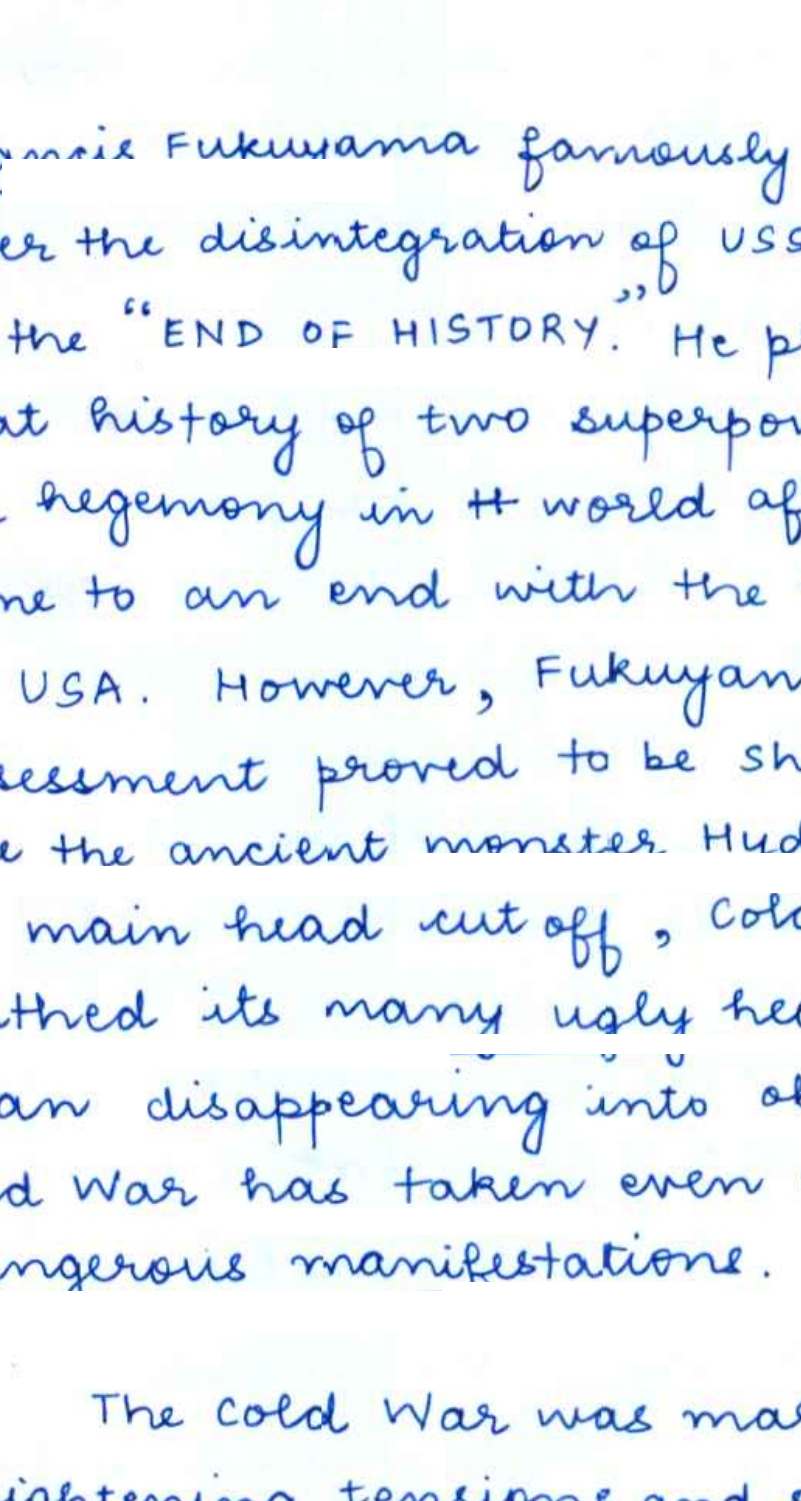 ancis Fukuyama famously
er the disintegration of USS
the "END OF HISTORY." He p
at history of two superpow
hegemony in H world af
me to an end with the
USA. However, Fukuyam
sessment proved to be sh
e the ancient monster Hud
main head cut off, Cold
athed its many ugly hea
an disappearing into ob
d War has taken even
angerous manifestations.
The Cold War was mar
ightening tensions and